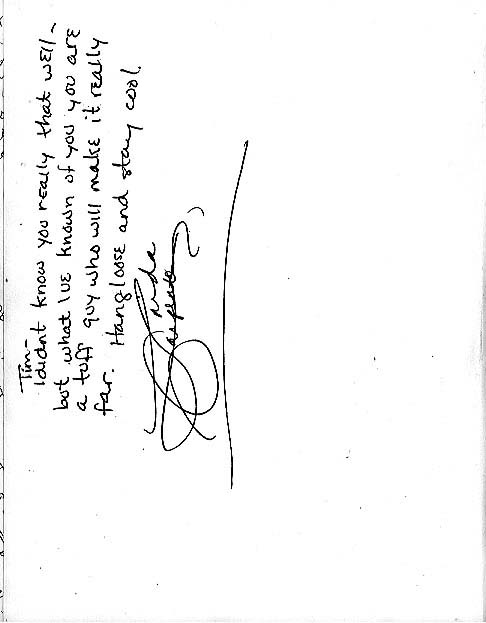 Tim-
I didnt know you really that well-
but what Ive known of you you are
a tuff guy who will make it really
far. Hang loose and stay cool.